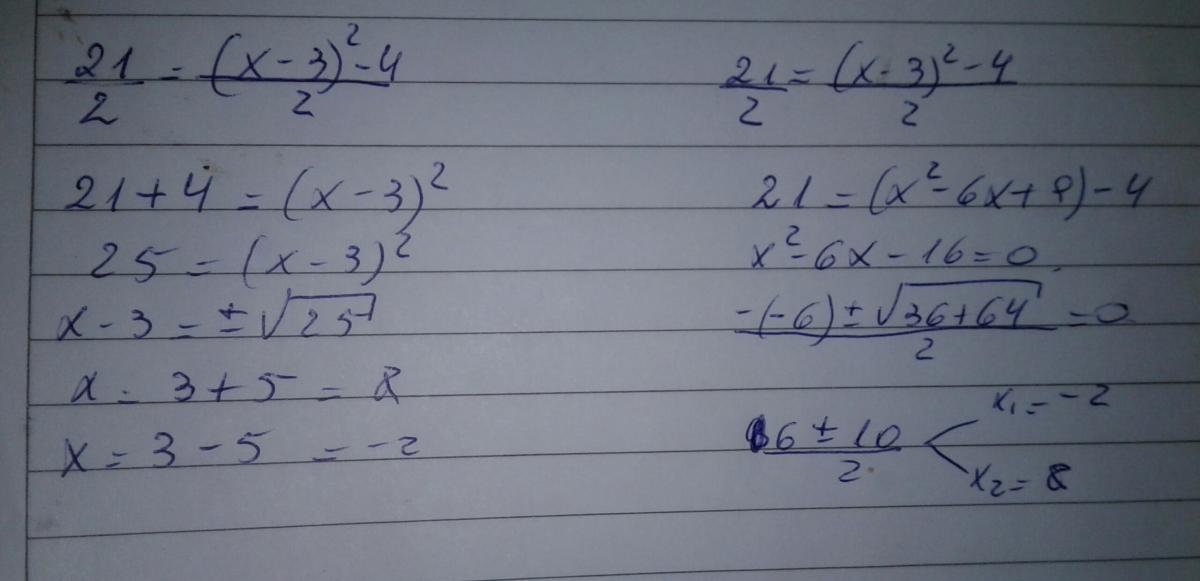 21/2 = (x-3)²-4/2
21+4 = (x-3)²
25 = (x-3)²
x-3 = ±√25
x = 3+5 = 8
x = 3-5 = -2
21/2 = (x-3)²-4/2
21 = (x²-6x+9)-4
x²-6x-16=0
-(-6)±√36+64/2 = 0
6±10/2
x₁=-2
x₂=8